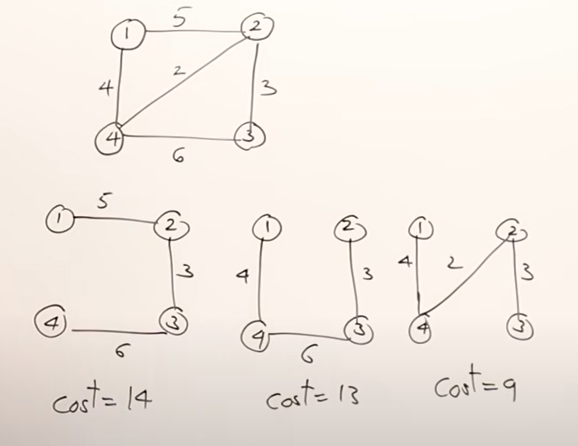 5
1 2
4 2 3
4 3
6
5
1 2
3
4 3
6
cost = 14
1 2
4 3
4 3
6
cost = 13
1 2
4 2 3
4 3
cost = 9